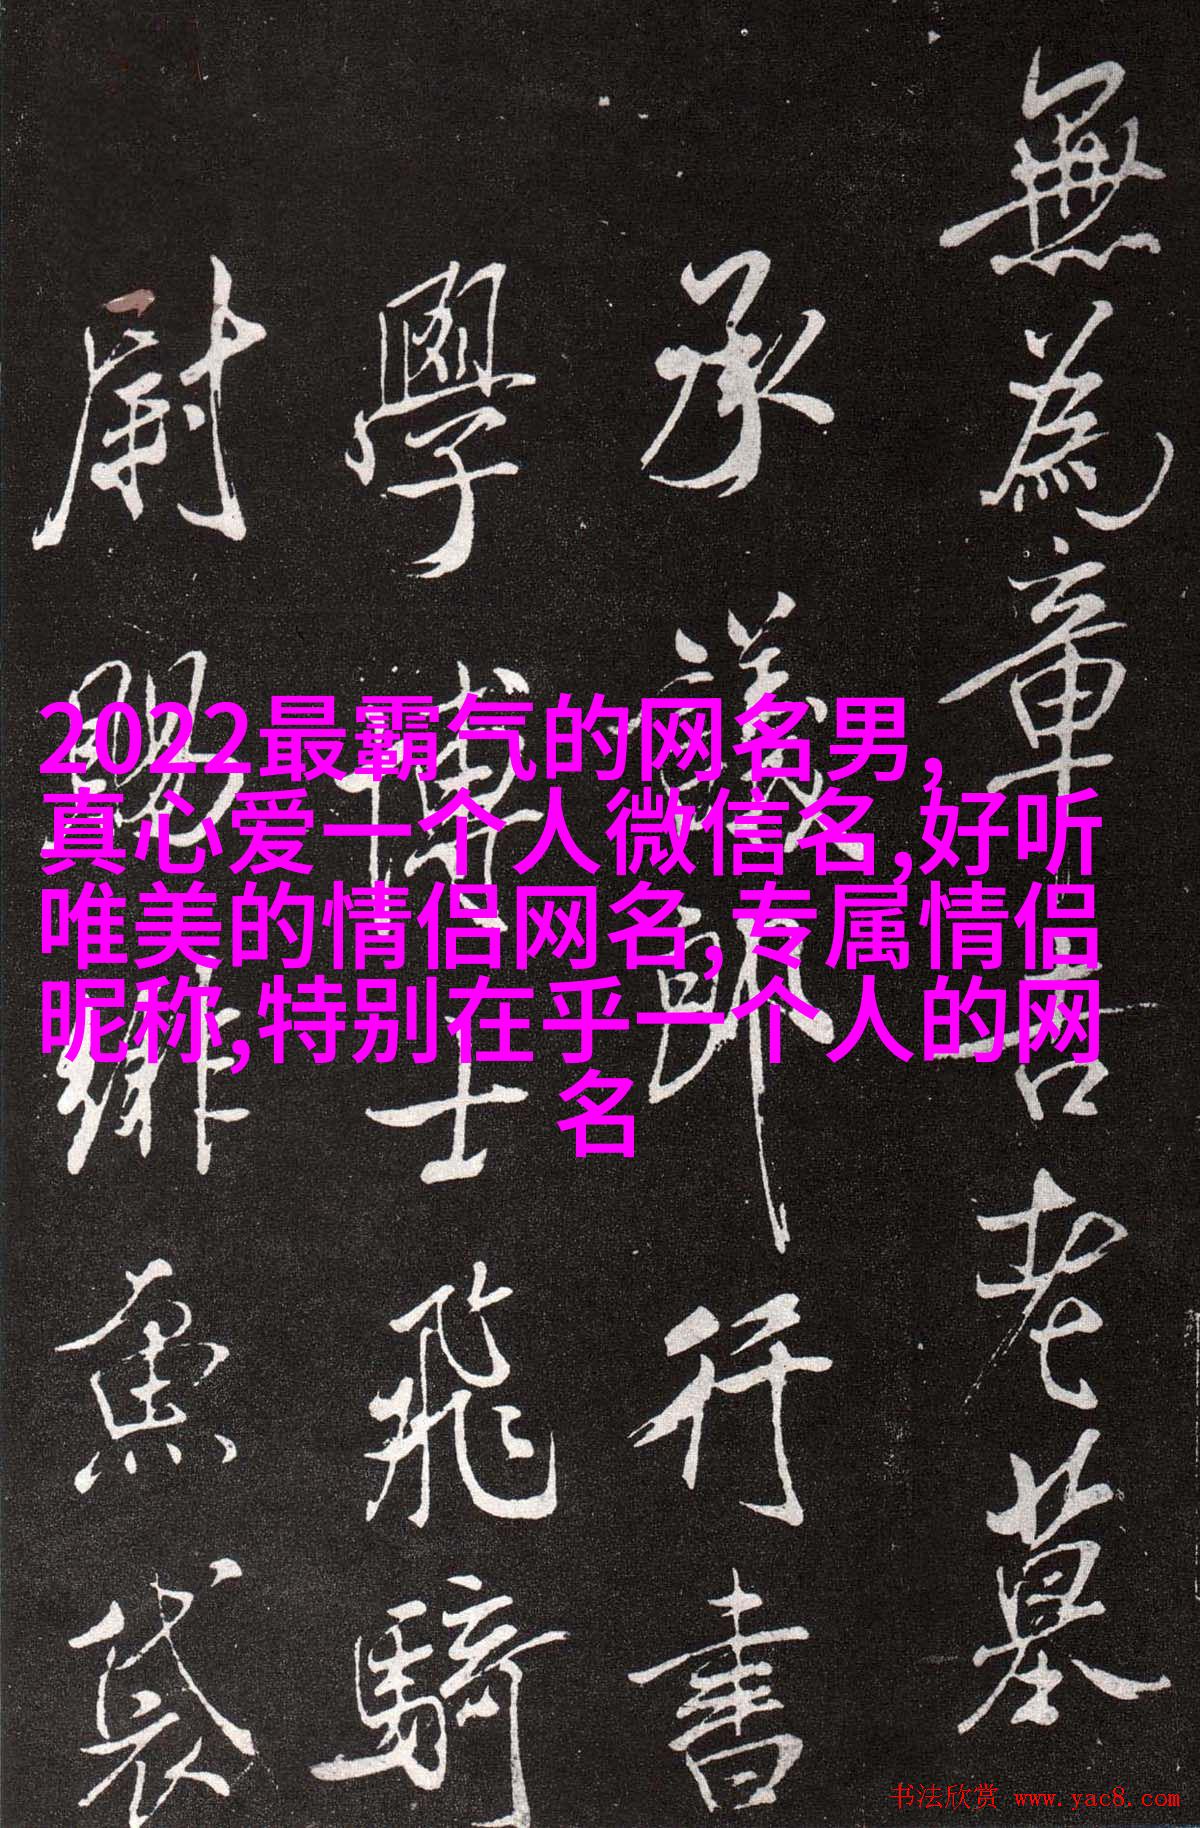 無為章吉老墓
承議郎行書
學博士飛騎
尉賜緋魚袋
2022最霸气的网名男,
真心爱一个人微信名,好听
唯美的情侣网名,专属情侣
昵称,特别在乎一个人的网
名
书法欣赏 www.yac8.com